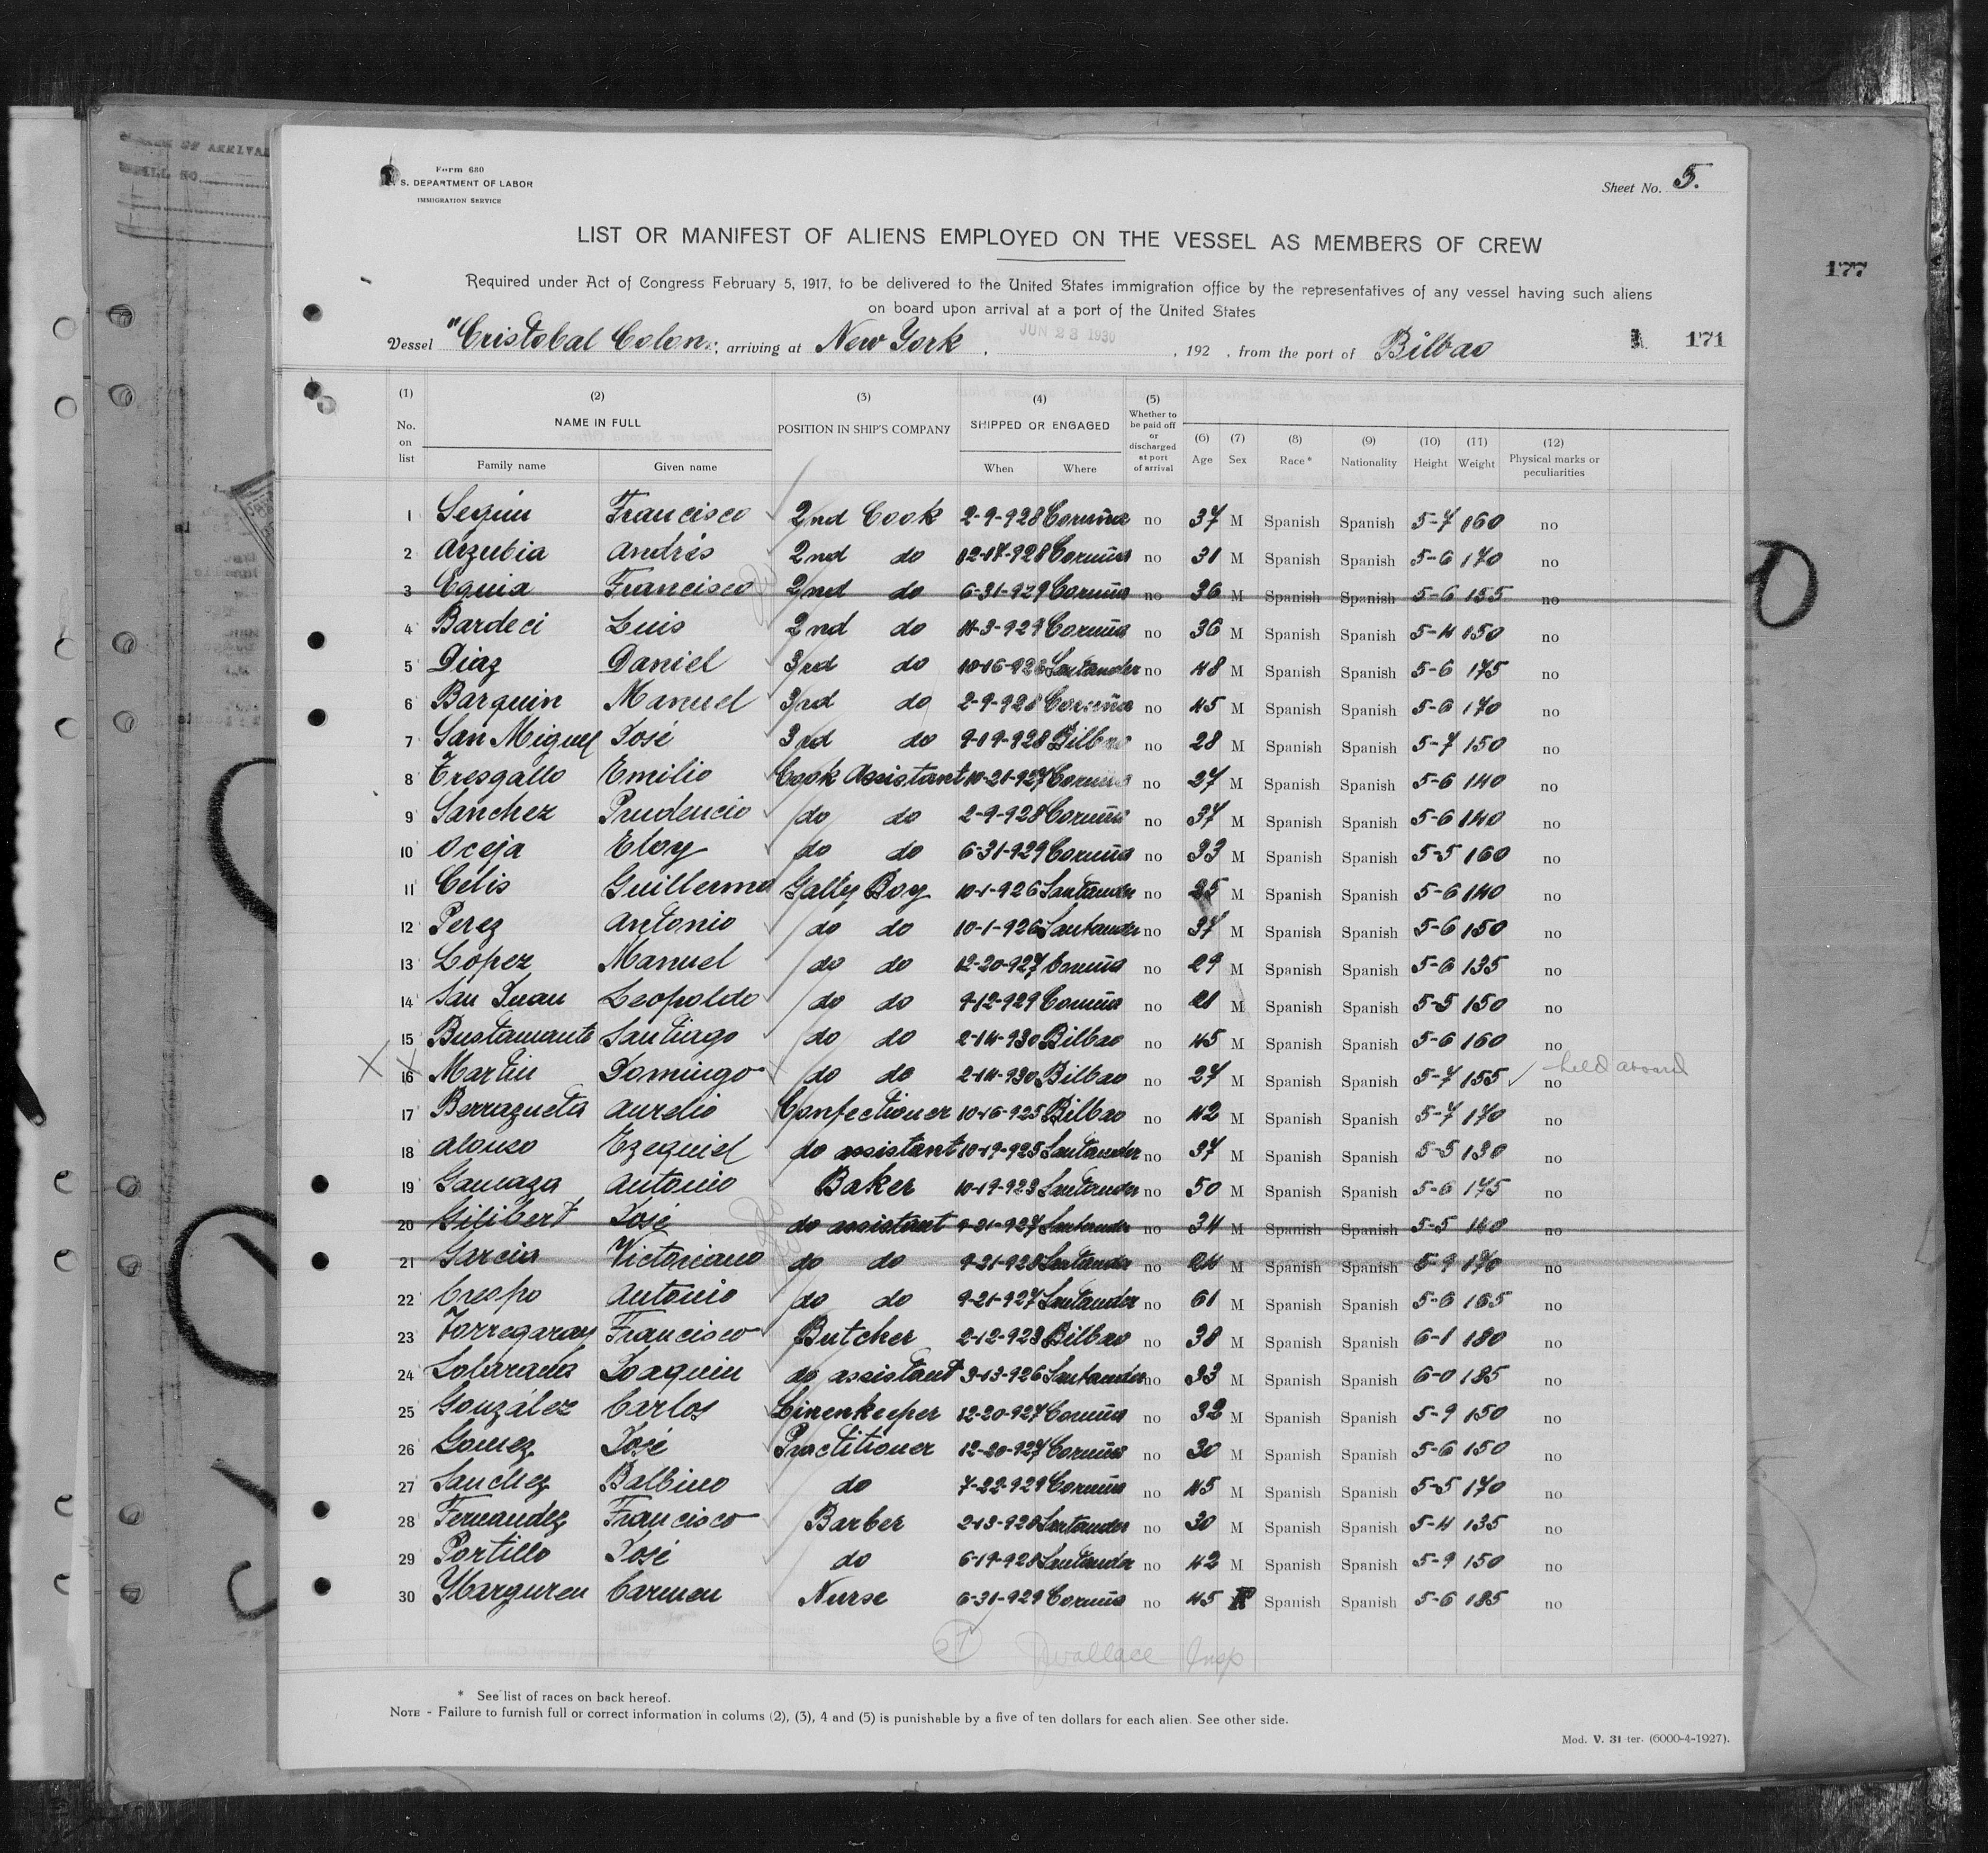 Form 680
S. DEPARTMENT OF LABOR
IMMIGRATION SERVICE
Sheet No. 5.
LIST OR MANIFEST OF ALIENS EMPLOYED ON THE VESSEL AS MEMBERS OF CREW
Required under Act of Congress February 5, 1917, to be delivered to the United States immigration office by the representatives of any vessel having such aliens
on board upon arrival at a port of the United States
177
JUN 23 1930
Vessel "Cristobal Colon", arriving at New York, 192 . from the port of Bilbao 171
(1) No. on list
(2) NAME IN FULL Family name Given name
(3) POSITION IN SHIP'S COMPANY
(4) SHIPPED OR ENGAGED When Where
(5) Whether to be paid off or discharged at port of arrival
(6) Age (7) Sex (8) Race* (9) Nationality (10) Height (11) Weight (12) Physical marks or peculiarities
1 Seguin Francisco 2nd Cook 2-9-928 Coruña no 37 M Spanish Spanish 5-7 160 no
2 Arzubia Andrés 2nd do 12-17-928 Coruña no 31 M Spanish Spanish 5-6 170 no
3 Eguia Francisco 2nd do 6-31-929 Coruña no 36 M Spanish Spanish 5-6 155 no
4 Bardeci Luis 2nd do 11-3-929 Coruña no 36 M Spanish Spanish 5-4 150 no
5 Diaz Daniel 3rd do 10-16-926 Santander no 48 M Spanish Spanish 5-6 175 no
6 Barquin Manuel 3rd do 2-9-928 Coruña no 45 M Spanish Spanish 5-6 170 no
7 San Miguel José 3rd do 9-19-928 Bilbao no 28 M Spanish Spanish 5-7 150 no
8 Tresgallo Emilio Cook Assistant 10-21-927 Coruña no 27 M Spanish Spanish 5-6 140 no
9 Sanchez Prudencio do do 2-9-928 Coruña no 37 M Spanish Spanish 5-6 140 no
10 Oceja Eloy do do 6-31-929 Coruña no 33 M Spanish Spanish 5-5 160 no
11 Celis Guillermo Gally Boy 10-1-926 Santander no 25 M Spanish Spanish 5-6 140 no
12 Perez Antonio do do 10-1-926 Santander no 37 M Spanish Spanish 5-6 150 no
13 Lopez Manuel do do 12-20-927 Coruña no 29 M Spanish Spanish 5-6 135 no
14 San Juan Leopoldo do do 9-12-929 Coruña no 21 M Spanish Spanish 5-5 150 no
15 Bustamante Santiago do do 2-14-930 Bilbao no 45 M Spanish Spanish 5-6 160 no
X X 16 Martin Domingo do do 2-14-930 Bilbao no 27 M Spanish Spanish 5-7 155 no held aboard
17 Berrazueta Aurelio Confectioner 10-16-925 Bilbao no 42 M Spanish Spanish 5-7 170 no
18 Alonso Ezequiel do assistant 10-19-925 Santander no 37 M Spanish Spanish 5-5 130 no
19 Gamaza Antonio Baker 10-19-923 Santander no 50 M Spanish Spanish 5-6 175 no
20 Gilibert José do assistant 9-21-927 Santander no 34 M Spanish Spanish 5-5 140 no
21 Garcia Victoriano do do 9-21-928 Santander no 24 M Spanish Spanish 5-9 170 no
22 Crespo Antonio do do 9-21-927 Santander no 61 M Spanish Spanish 5-6 165 no
23 Torregaray Francisco Butcher 2-12-923 Bilbao no 38 M Spanish Spanish 6-1 180 no
24 Joaquin do assistant 9-13-926 Santander no 33 M Spanish Spanish 6-0 185 no
25 González Carlos Linenkeeper 12-20-927 Coruña no 32 M Spanish Spanish 5-9 150 no
26 Gomez José Practitioner 12-20-927 Coruña no 30 M Spanish Spanish 5-6 150 no
27 Sanchez Balbino do 7-22-929 Coruña no 45 M Spanish Spanish 5-5 170 no
28 Fernandez Francisco Barber 2-13-928 Santander no 30 M Spanish Spanish 5-4 135 no
29 Portillo José do 6-19-928 Santander no 42 M Spanish Spanish 5-9 150 no
30 Ybarguren Carmen Nurse 6-31-929 Coruña no 45 F Spanish Spanish 5-6 185 no
27 Wallace Insp
* See list of races on back hereof.
NOTE - Failure to furnish full or correct information in colums (2), (3), 4 and (5) is punishable by a five of ten dollars for each alien. See other side.
Mod. V. 31 ter. (6000-4-1927).